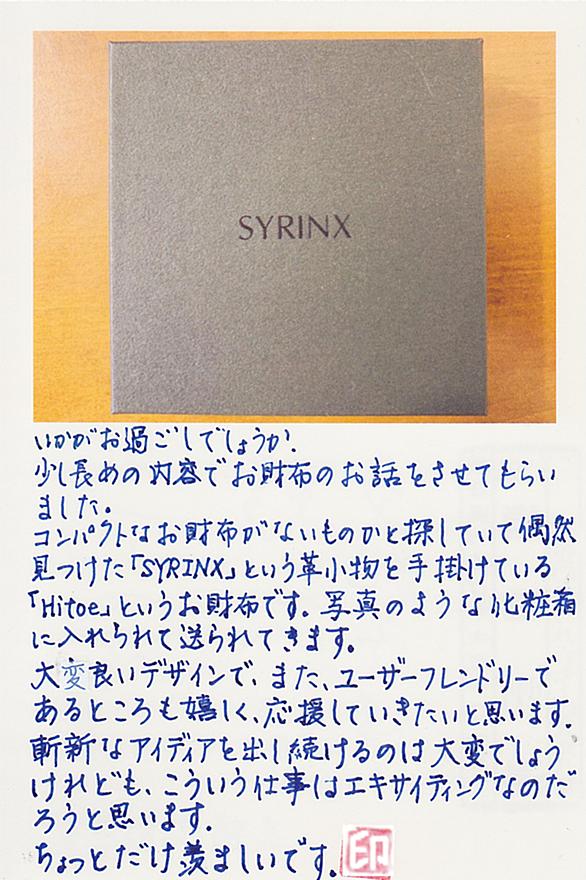 SYRINX
いかがお過ごしでしょうか.
少し長めの内容でお財布のお話をさせてもらい
ました。
コンパクトなお財布がないものかと探していて偶然
見つけた「SYRINX」という革小物を手掛けている
「Hitoe」というお財布です。写真のような化粧箱
に入れられて送られてきます。
大変良いデザインで、また、ユーザーフレンドリーで
あるところも嬉しく、応援していきたいと思います.
斬新なアイディアを出し続けるのは大変でしょう
けれども、こういう仕事はエキサイティングなのだ
ろうと思います.
ちょっとだけ羨ましいです。印